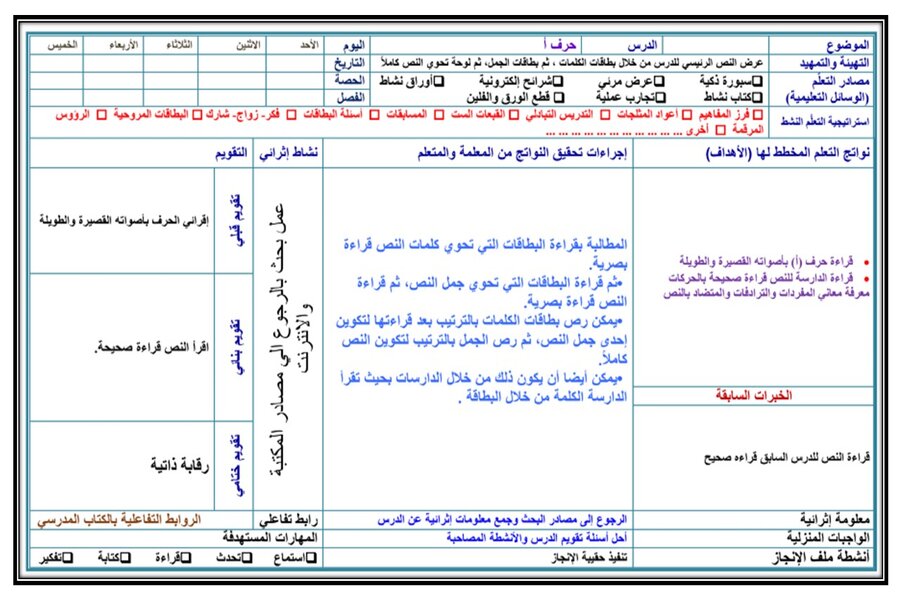 الموضوع
الدرس
حرف أ
اليوم
الأحد
الاثنين
الثلاثاء
الأربعاء
الخميس
التهيئة والتمهيد
عرض النص الرئيسي للدرس من خلال بطاقات الكلمات ، ثم بطاقات الجمل، ثم لوحة تحوي النص كاملاً
التاريخ
مصادر التعلّم
❑سبورة ذكية ❑عرض مرئي ❑شرائح إلكترونية ❑أوراق نشاط
الحصة
(الوسائل التعليمية)
❑كتاب نشاط ❑تجارب عملية ❑ قطع الورق والفلين
الفصل
استراتيجية التعلّم النشط
□ فرز المفاهيم □ أعواد المثلجات □ التدريس التبادلي □ القبعات الست □ المسابقات □ أسئلة البطاقات □ فكر- زواج- شارك □ البطاقات المروحية □ الرؤوس
المرقمة □ أخرى ... ... ... ... ... ... ... ... ... ... ...
نواتج التعلم المخطط لها (الأهداف)
إجراءات تحقيق النواتج من المعلمة والمتعلم
نشاط إثرائي
التقويم
• قراءة حرف (أ) بأصواته القصيرة والطويلة
• قراءة الدارسة للنص قراءة صحيحة بالحركات
معرفة معاني المفردات والترادفات والمتضاد بالنص
الخبرات السابقة
قراءة النص للدرس السابق قراءه صحيح
المطالبة بقراءة البطاقات التي تحوي كلمات النص قراءة
بصرية.
•ثم قراءة البطاقات التي تحوي جمل النص، ثم قراءة
النص قراءة بصرية.
•يمكن رص بطاقات الكلمات بالترتيب بعد قراءتها لتكوين
إحدى جمل النص، ثم رص الجمل بالترتيب لتكوين النص
كاملاً.
•يمكن أيضا أن يكون ذلك من خلال الدارسات بحيث تقرأ
الدارسة الكلمة من خلال البطاقة .
عمل بحث بالرجوع الي مصادر المكتبة
والانترنت
تقويم قبلي
إقرائي الحرف بأصواته القصيرة والطويلة
تقويم بنائي
اقرأ النص قراءة صحيحة.
تقويم ختامي
رقابة ذاتية
معلومة إثرائية
الرجوع إلى مصادر البحث وجمع معلومات إثرائية عن الدرس
رابط تفاعلي
الروابط التفاعلية بالكتاب المدرسي
الواجبات المنزلية
أحل أسئلة تقويم الدرس والأنشطة المصاحبة
المهارات المستهدفة
أنشطة ملف الإنجاز
تنفيذ حقيبة الإنجاز
❑استماع ❑تحدث ❑قراءة ❑كتابة ❑تفكير